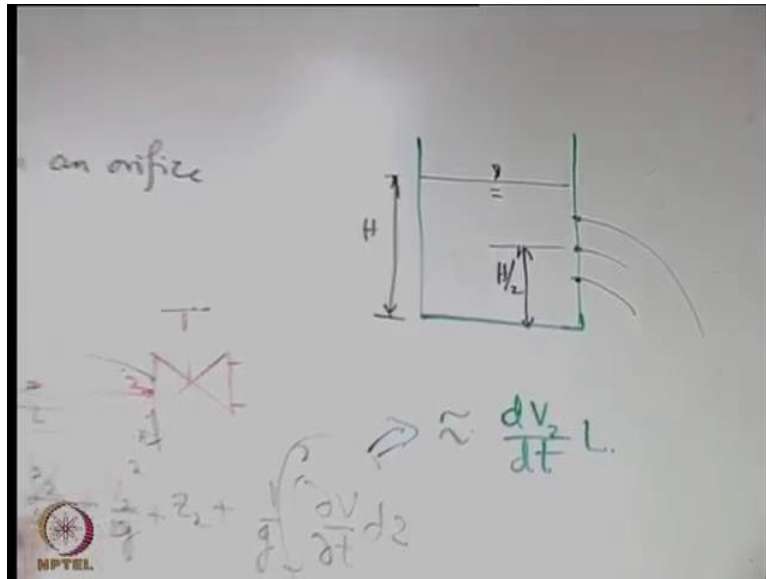 an orifice
H
H/2
≈ dV₂/dt L.
+ Z₂ + 1/g ∫ ∂V/∂t ds
NPTEL